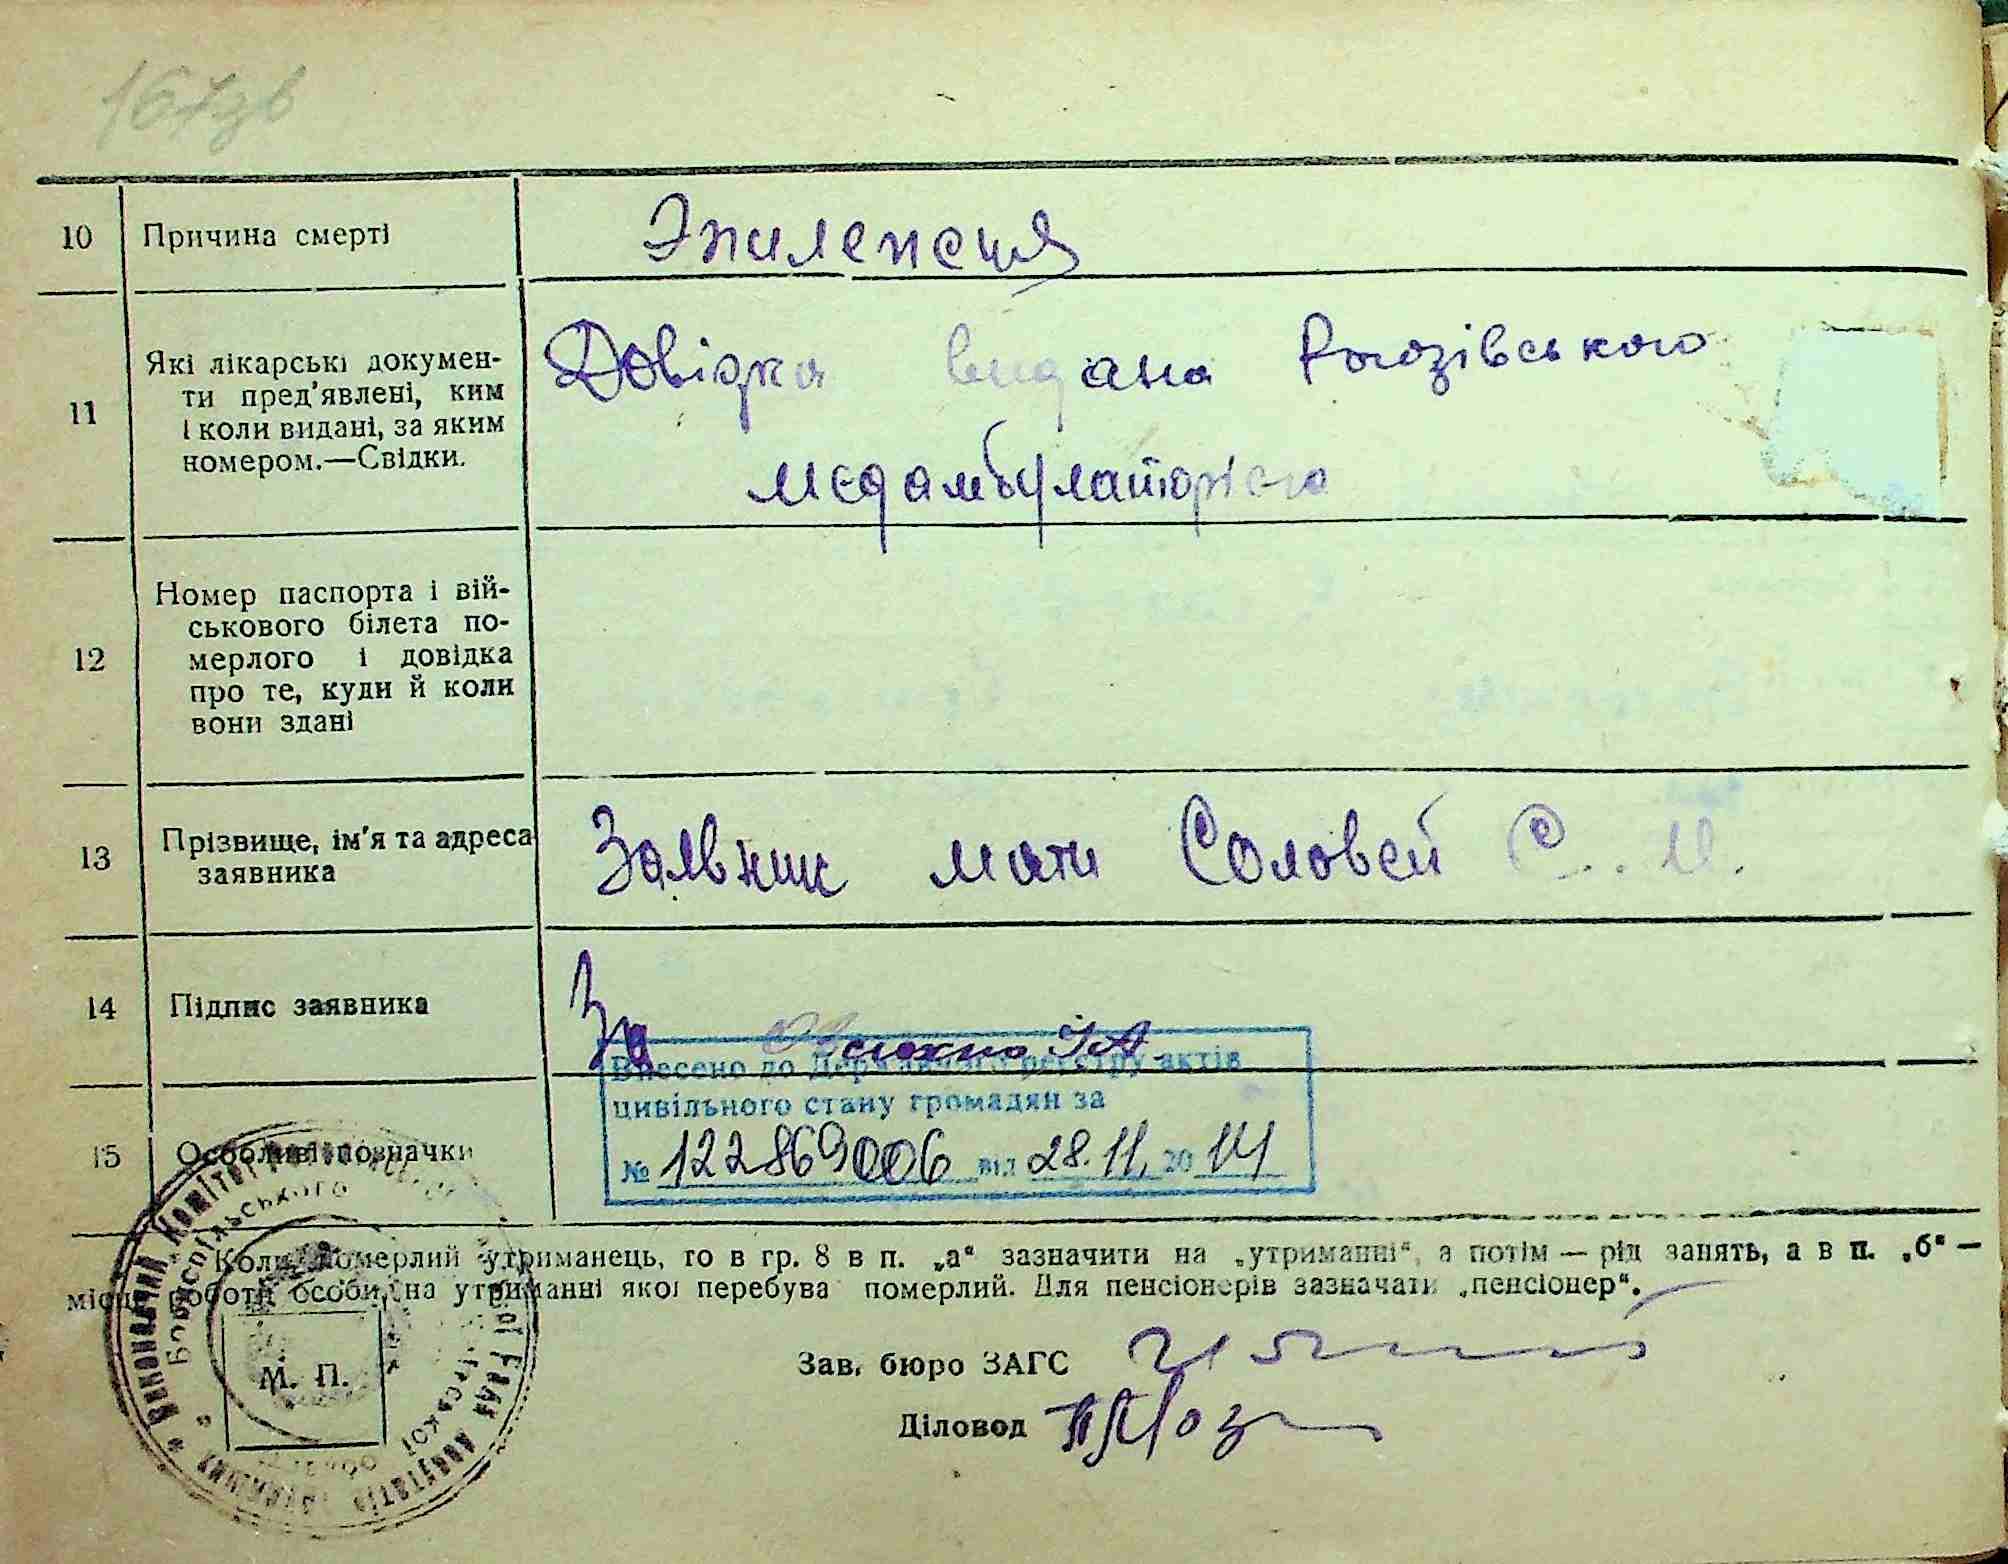 167зв
10 Причина смерті Эпилепсия
11 Які лікарські докумен-
ти пред'явлені, ким
і коли видані, за яким
номером.—Свідки.
Довідка видана Рогозівського
медамбулаторією
12 Номер паспорта і вій-
ськового білета по-
мерлого і довідка
про те, куди й коли
вони здані
13 Прізвище, ім'я та адреса
заявника
Заявник мати Соловей С.. И.
14 Підпис заявника За
Внесено до Державного реєстру актів
цивільного стану громадян за
№ 122869006 від 28.11. 2014
15 Особливі позначки
Коли померлий утриманець, то в гр. 8 в п. „а“ зазначити на „утриманні“, а потім — рід занять, а в п. „б“ —
місце роботи особи, на утриманні якої перебува померлий. Для пенсіонерів зазначати „пенсіонер“.
Зав. бюро ЗАГС
Діловод
М. П.
Виконавчий Комітет
Бориспільського
Ради депутатів